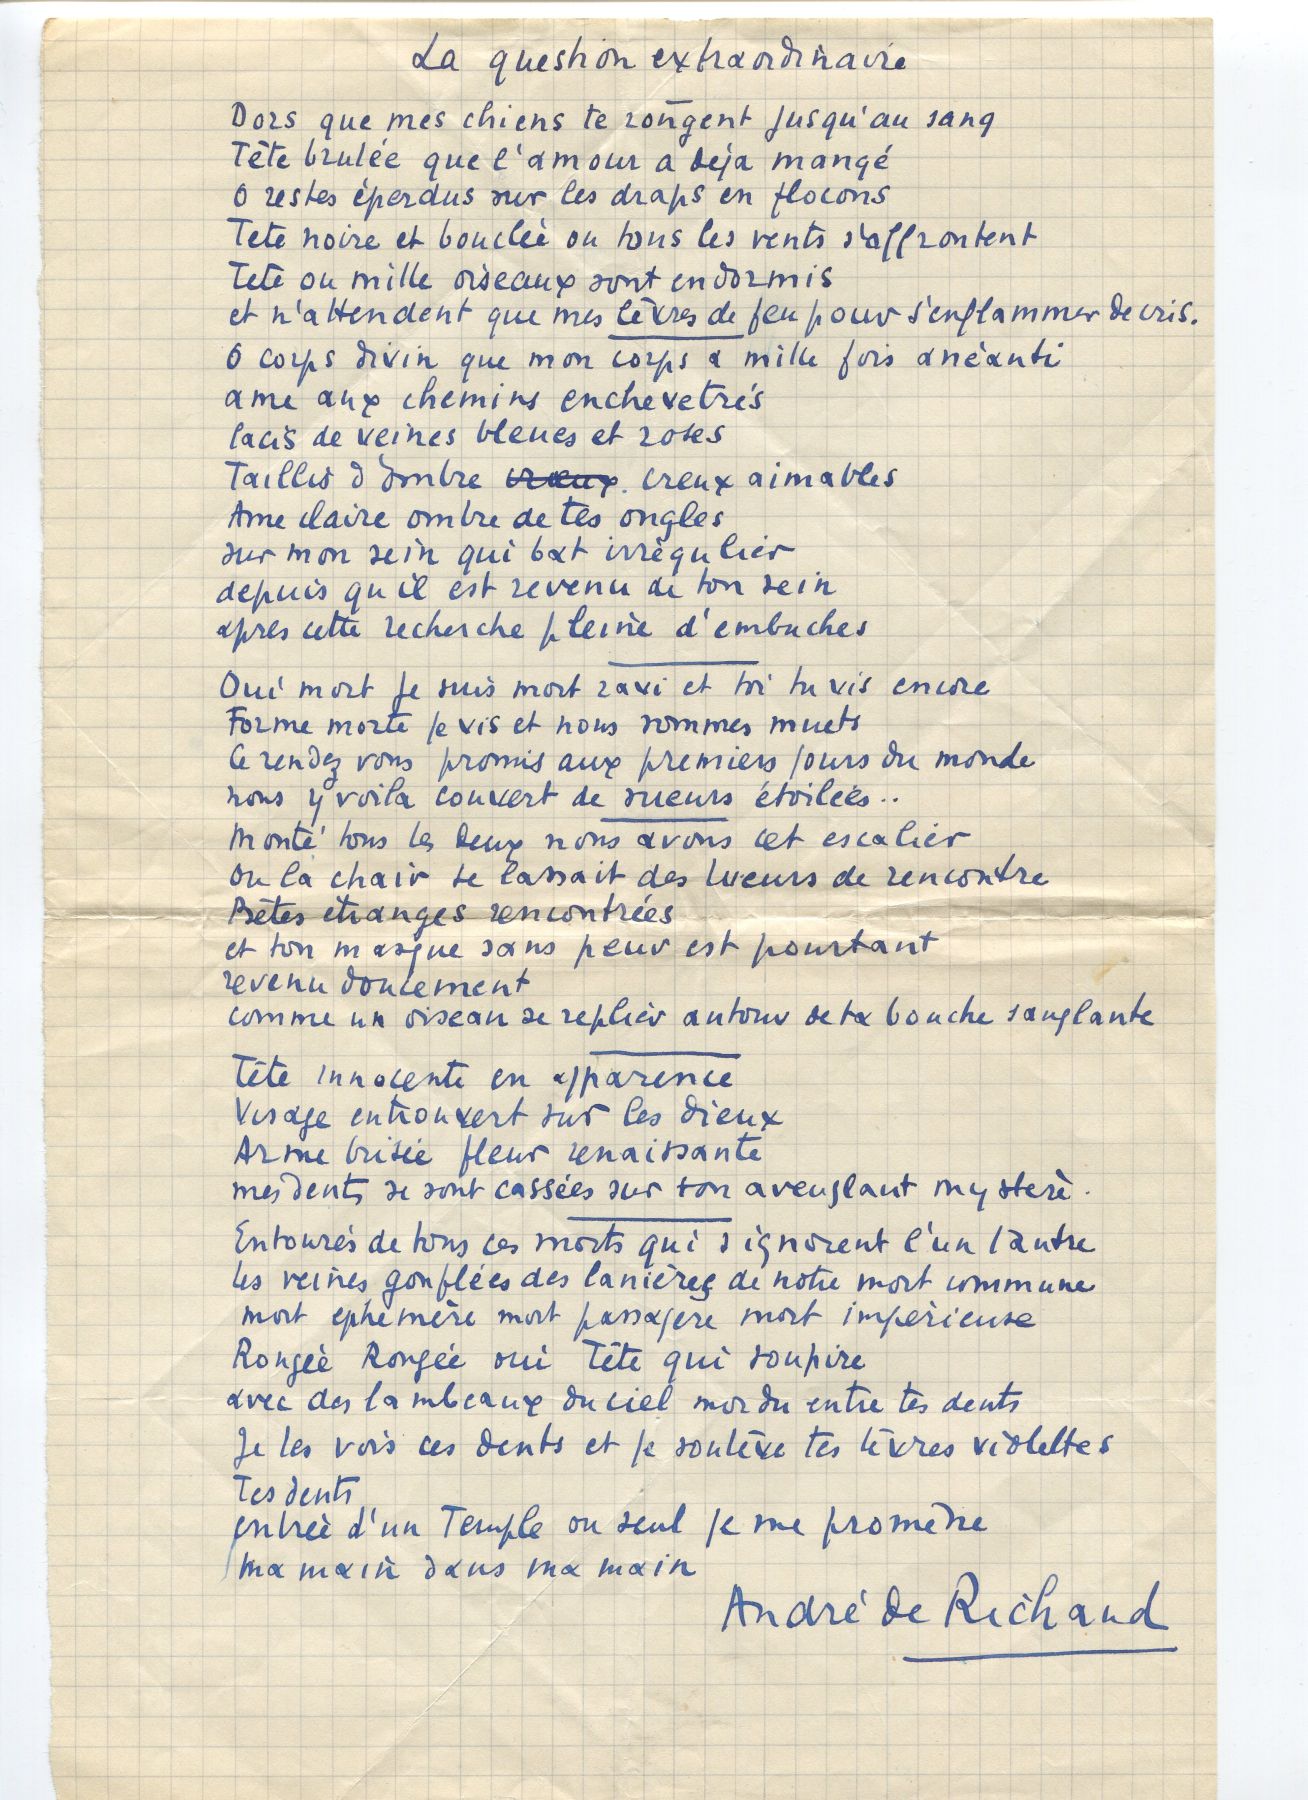 La question extraordinaire
Dors que mes chiens te rongent jusqu'au sang
Tête brulée que l'amour a déja mangé
O restes éperdus sur les draps en flocons
Tete noire et bouclée ou tous les vents s'affrontent
Tete ou mille oiseaux sont endormis
et n'attendent que mes lèvres de feu pour s'enflammer de cris.
O corps divin que mon corps a mille fois anéanti
ame aux chemins enchevetrés
lacis de veines bleues et roses
Taillis d'ombre creux. creux aimables
Ame claire ombre de tes ongles
sur mon sein qui bat irrégulier
depuis qu'il est revenu de ton sein
apres cette recherche pleine d'embuches
Oui mort je suis mort ravi et toi tu vis encore
Forme morte je vis et nous sommes muets
Ce rendez vous promis aux premiers jours du monde
nous y voila couvert de sueurs étoilées..
Monté tous les deux nous avons cet escalier
Ou la chair se lassait des lueurs de rencontre
Bêtes étranges rencontrées
et ton masque sans peur est pourtant
revenu doucement
comme un oiseau se replier autour de ta bouche sanglante
Tête innocente en apparence
Visage entrouvert sur les dieux
Arme brisée fleur renaissante
mes dents se sont cassées sur ton aveuglant mystere.
Entourés de tous ces morts qui s'ignorent l'un l'autre
les veines gonflées des lanières de notre mort commune
mort ephémère mort passagère mort impérieuse
Rongée Rongée oui Tête qui soupire
avec des lambeaux du ciel mordu entre tes dents
Je les vois ces dents et je soulève tes lèvres violettes
Tes dents
entrée d'un Temple ou seul je me promène
ma main dans ma main
André de Richaud